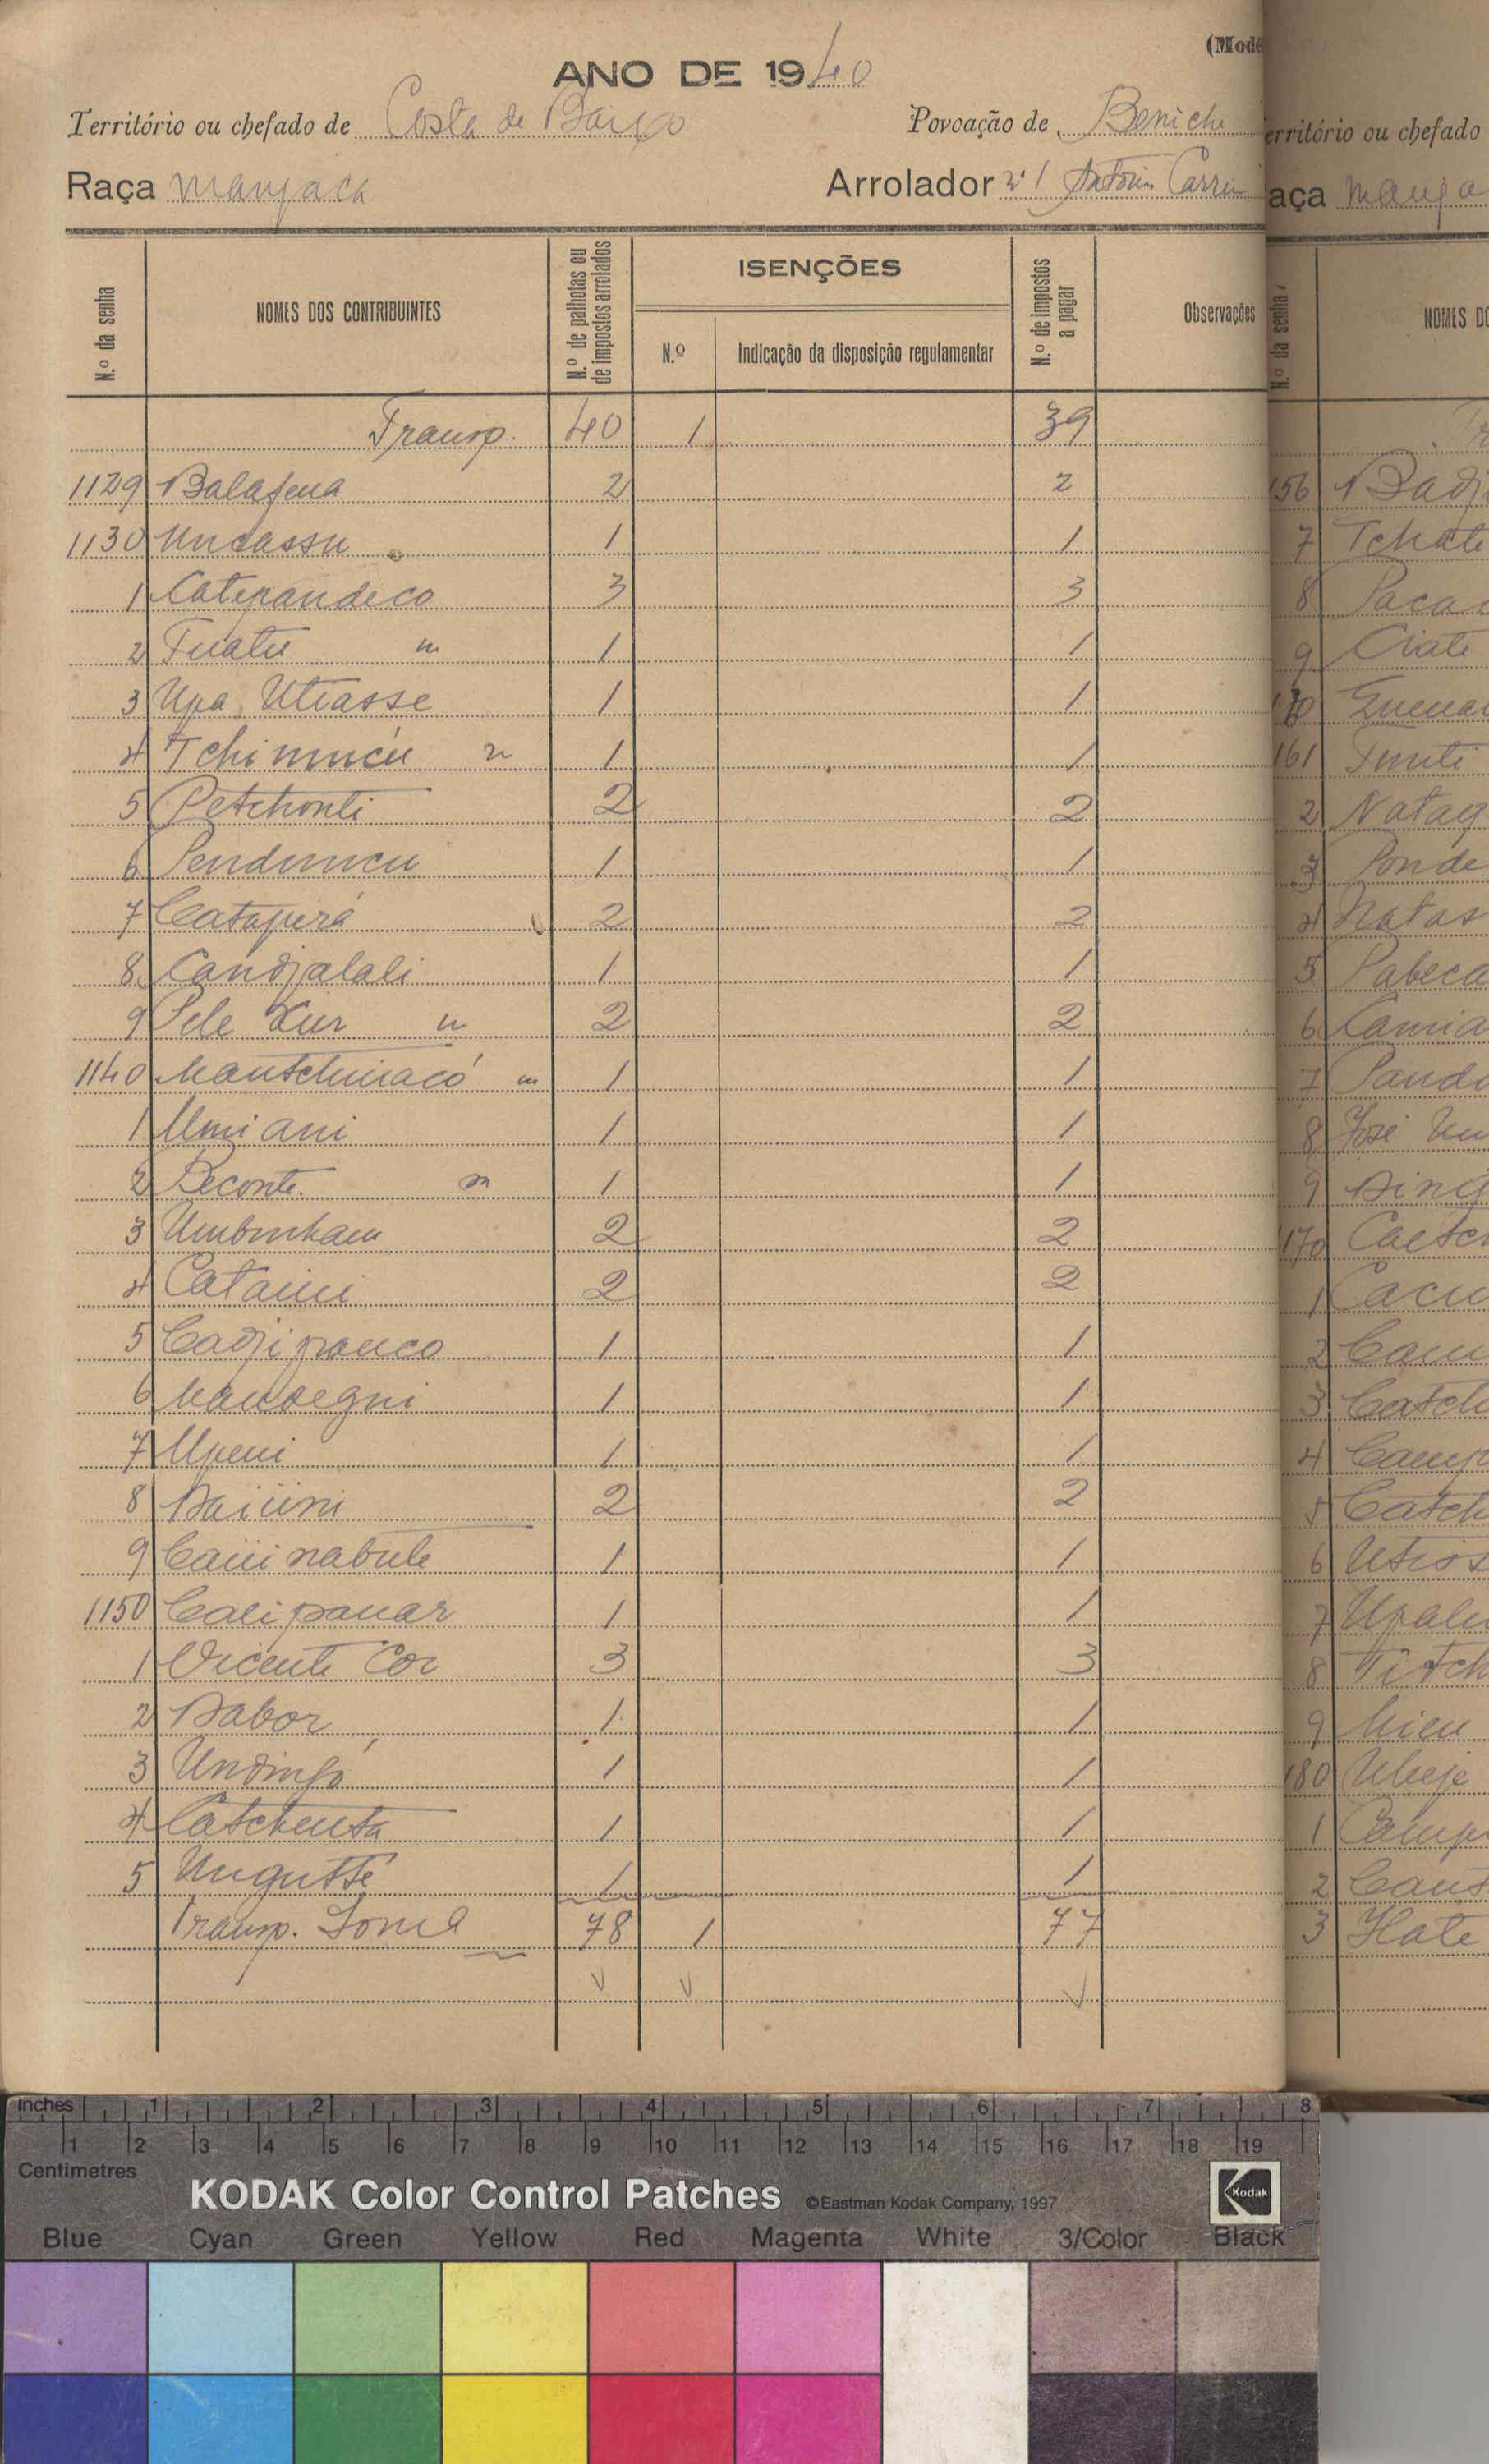 (Mode
ANO DE 1940
Território ou chefado de Costa de Baixo
Povoação de Beniche
Raça Manjaca
Arrolador nº 1 António Carrei
N.º da senha
NOMES DOS CONTRIBUINTES
N.º de palhotas ou de impostos arrolados
ISENÇÕES
N.º
Indicação da disposição regulamentar
N.º de impostos a pagar
Observações
Transp. 40 1 39
1129 Balafena 2 2
1130 Uncassu 1 1
1 Caterandeco 3 3
2 Tuatu 1 1
3 Upa Utiasse 1 1
4 Tchimucu 1 1
5 Petchonti 2 2
6 Penduncu 1 1
7 Cataperá 2 2
8 Candjalali 1 1
9 Pele Xur 2 2
1140 Mantchinacó 1 1
1 Umiani 1 1
2 Beconte 1 1
3 Umbunham 2 2
4 Cataini 2 2
5 Cadjipranco 1 1
6 Mandegni 1 1
7 Upeni 1 1
8 Daiúni 2 2
9 Caiii nabule 1 1
1150 Calipanar 1 1
1 Vicente Cor 3 3
2 Dabor 1 1
3 Undingó 1 1
4 Catchenta 1 1
5 Ungutté 1 1
Transp. Soma 78 1 77
erritório ou chefado
aça Manja
N.º da senha
NOMES DO
156 Badj
7 Tchate
8 Paca
9 Ciate
160
161 Tunti
2 Nataq
3 Ponde
4 Natas
5 Pabeca
6 Camia
7 Pandi
8 José
9 Ding
170 Caetch
1 Cacu
2 Cam
3 Catch
4 Camp
5 Catch
6 Utios
7 Upale
8 Titch
9 Mieu
180
1 Camp
2 Cant
3 Hate
inches 1 2 3 4 5 6 7 8
1 2 3 4 5 6 7 8 9 10 11 12 13 14 15 16 17 18 19
Centimetres
KODAK Color Control Patches ©Eastman Kodak Company, 1997 Kodak
Blue Cyan Green Yellow Red Magenta White 3/Color Black